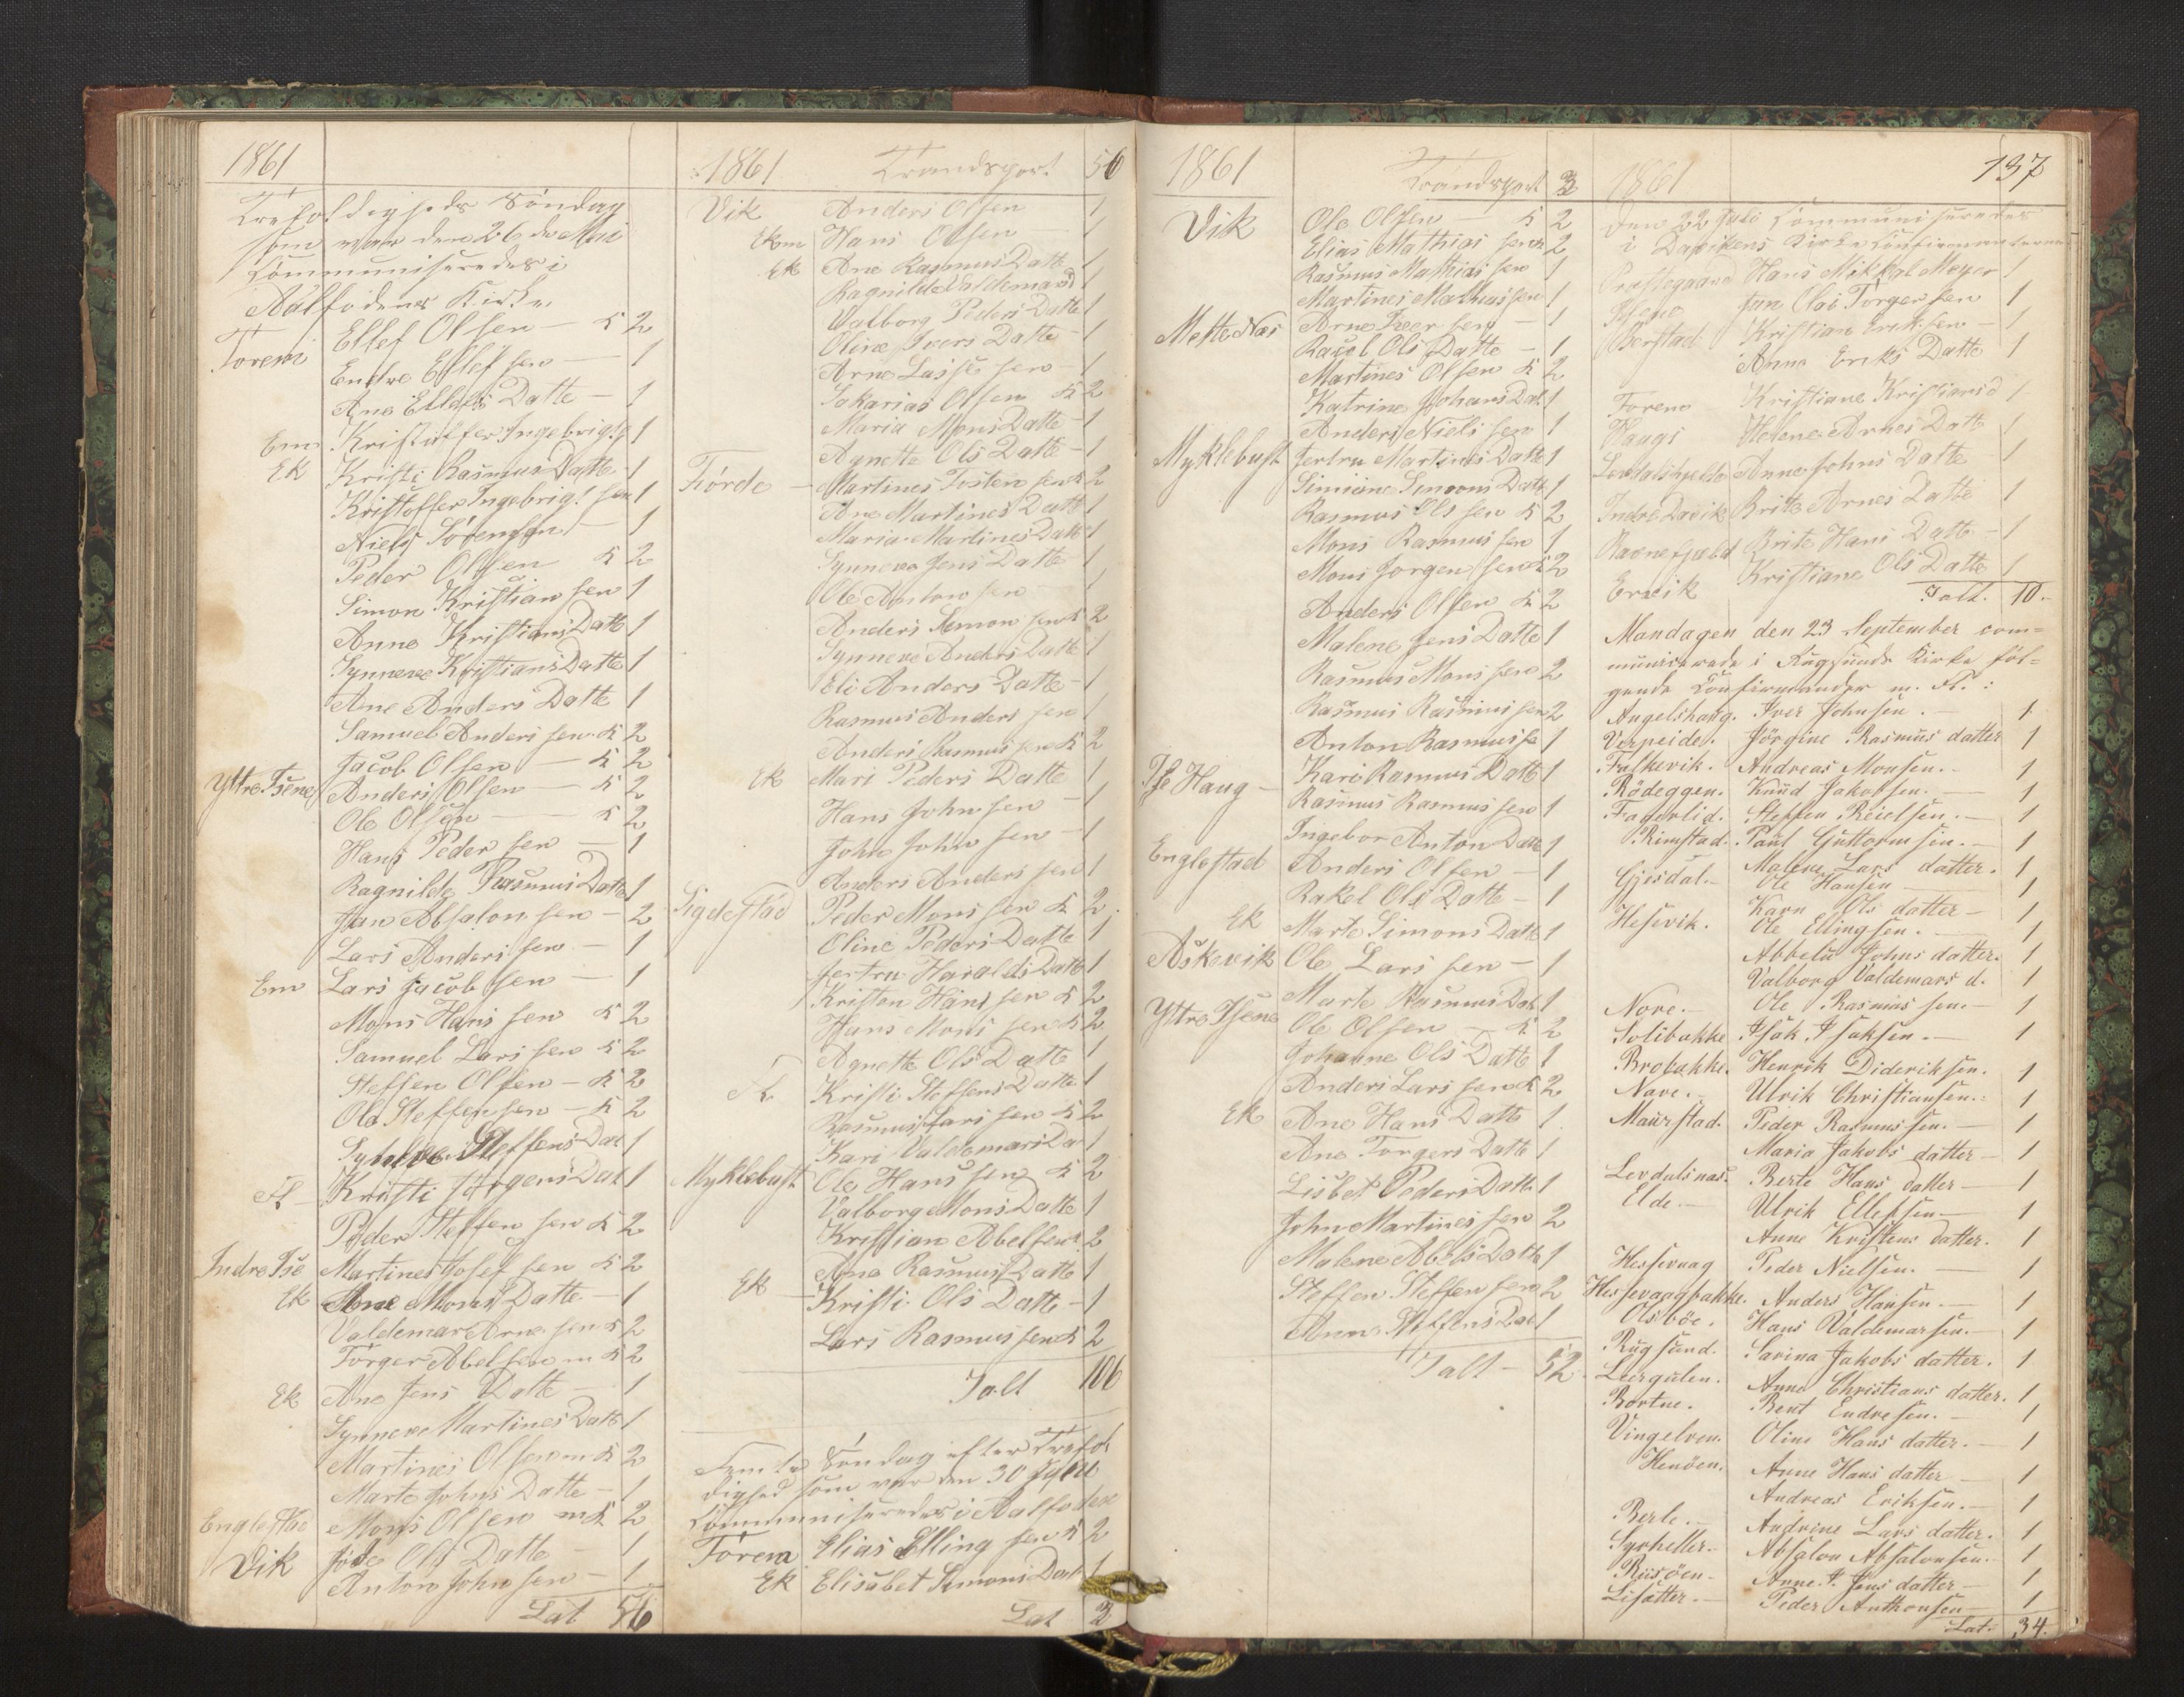 1861
Trefoldigheds Söndag
som var den 26 de Mai
Communiseredes i
Aalfodens Kirke
Torem Ellef Olsen – K 2
Endre Ellef sen – 1
Ane Ellefs Datte – 1
Em Kristoffer Ingebrigts 1
Ek Kristi Rasmus Datte 1
Kristoffer Ingebrigt sen 1
Niels Sörensen – 1
Peder Olsen K 2
Simon Kristian sen 1
Anne Kristians Datte 1
Synneve Kristians Datte 1
Ane Anders Datte 1
Samuel Anders sen K 2
Jacob Olsen – K 2
Yttre Isene Anders Olsen – K 2
Ole Olsen – K 2
Hans Peder sen – 1
Ragnilde Rasmus Datte 1
Jan Absalon sen – 2
Lars Anders sen – 1
Em Lars Jacob sen – 1
Mons Hans sen K 2
Samuel Lars sen K 2
Steffen Olsen – K 2
Ole Steffensen – K 2
Synneve Steffens Dat 1
Fl – Kristi Jörgens Dat 1
Peder Steffen sen K 2
Indre Ise Martines Josef sen K 2
Ek Ane Mons Datte – 1
Valdemar Arne sen K 2
Torger Abel sen m K 2
Ek Ane Jens Datte – 1
Synneve Martines Datte 1
Martines Olsen m K 2
Marte Johns Datte – 1
Englestad Mons Olsen m K 2
Vik Ols Datte – 1
Anton John sen – 1
Lat 56
1861 Trandsport 56
Vik Anders Olsen 1
Ekm Hans Olsen 1
Ek Ane Rasmus Datte 1
Ragnilde Valdemars d 1
Valborg Peders Datte 1
Oline Ivers Datte – 1
Arne Lasse sen – 1
Sakarias Olsen K 2
Maria Mons Datte – 1
Agnette Ols Datte – 1
Förde – Martines Tosten sen K 2
Ane Martines Datte 1
Maria Martines Datte 1
Synneva Jens Datte 1
Ole Anton sen 1
Anders Semon sen K 2
Synneve Anders Datte 1
Eli Anders Datte – 1
Rasmus Anders sen 1
Anders Rasmus sen K 2
Ek Mari Peders Datte 1
Hans John sen – 1
John John sen – 1
Anders Anders sen 1
Sigdestad Peder Mons sen K 2
Oline Peders Datte 1
Jertru Haralds Datte 1
Kristen Hans sen K 2
Hans Mons sen K 2
Agnette Ols Datte 1
Fl Kristi Steffens Datte 1
Rasmus Lars sen K 2
Kari Valdemars Da 1
Myklebust Ole Hans sen K 2
Valborg Mons Datte 1
Kristian Abelsen 2
Ane Rasmus Datte 1
Ek – Kristi Ols Datte – 1
Lars Rasmus sen K 2
Ialt 106
Femte Söndag efter Trefol
dighed som var den 30 Juni
Communiseredes i Aalfoden
Torem Elias Elling sen K 2
Ek Elisabet Simons Dat 1
Lat 3
1861 Trandsport 3
Vik Ole Olsen – K 2
Elias Mathias sen K 2
Rasmus Mathias sen 1
Martines Mathias sen 1
Mette Næs Arne Iver sen – 1
Racel Ols Datte – 1
Martines Olsen K 2
Katrine Johans Dat 1
Anders Niels sen 1
Myklebust Jertru Martines Datte 1
Simiane Simons Datte 1
Rasmus Ols sen K 2
Mons Rasmus sen 1
Mons Jorgen sen K 2
Anders Olsen K 2
Malene Jens Datte 1
Rasmus Mons sen 2
Rasmus Rasmus sen 2
Anton Rasmus se 1
Ise Haug – Kari Rasmus Datte 1
Rasmus Rasmus sen 1
Ingebor Anton Datte 1
Englestad Anders Olsen – 1
Rakel Ols Datte – 1
Ek Marte Simons Datte 1
Askevik Ole Lars sen – 1
Marte Rasmus Dat 1
Yttre Isene Ole Olsen K 2
Johanne Ols Datte 1
Anders Lars sen K 2
Ek Ane Hans Datte 1
Ane Torgers Datte 1
Lisbet Peders Datte 1
John Martines sen 2
Malene Abels Datte 1
Steffen Steffen sen 2
Anne Steffens Dat 1
Ialt – 52
1861 137
Den 22 Communiseredes
i Davikens Kirke Confirmanterne
Præstegaard Hans Mikkal Meyer 1
Isene Jan Olai Torger sen 1
Berstad Kristian Erik sen – 1
Anne Eriks Datte 1
Torem Kristiane Kristians d 1
Haugs Helene Arnes Datte 1
Levdalshjelde Anne Johns Datte 1
Indre Davik Brite Arnes Datte 1
Ravnefjæld Brite Hans Datte – 1
Ervik Kristiane Ols Datte 1
Ialt. 10.
Mandagen den 23 September com=
municerede i Rugsunds Kirke föl=
gende Confirmander m. Fl. :
Angelshaug. Iver Johnsen. – 1
Verpeide. Jörgine Rasmus datter 1
Falkevik. Andreas Monsen. – 1
Rödeggen. Knud Jakobsen. – 1
Fagerlid. Steffen Reielsen. – 1
Rimstad. Paul Guttormsen. – 1
Malene Lars datter. 1
Gjesdal. – Ole Hansen 1
Karn Ols datter – 1
Hesevik. Ole Ellingsen. – 1
Abbelu Johns datter. 1
Valborg Valdemars d. 1
Nore. – Ole Rasmus sen. – 1
Solibakke Isak Isaksen. – 1
Brobakke. Henrik Dideriksen. 1
Nave. – Ulrik Christiansen. 1
Maurstad. Peder Rasmussen. – 1
Maria Jakobs datter – 1
Levdalsnæs. Berte Hans datter – 1
Elde. – Ulrik Ellefsen – 1
Anne Kristens datter. 1
Hessevaag Peder Nielsen. – 1
Hessevaagbakke. Anders Hansen. – 1
Olsböe. Hans Valdemarsen. – 1
Rugsund. Sarina Jakobs datter. 1
Leirgulen. Anne Christians datter. 1
Bortne. Bent Endresen. – 1
Vingelven. Oline Hans datter. – 1
Henöen. Anne Hans datter – 1
Andreas Eriksen. – 1
Berle. – Andrine Lars datter. 1
Syrheller. – Absalon Absalonsen. 1
Risöen – Anne J. Jens datter – 1
Lisætter. – Peder Anthonsen – 1
Lat. 34.